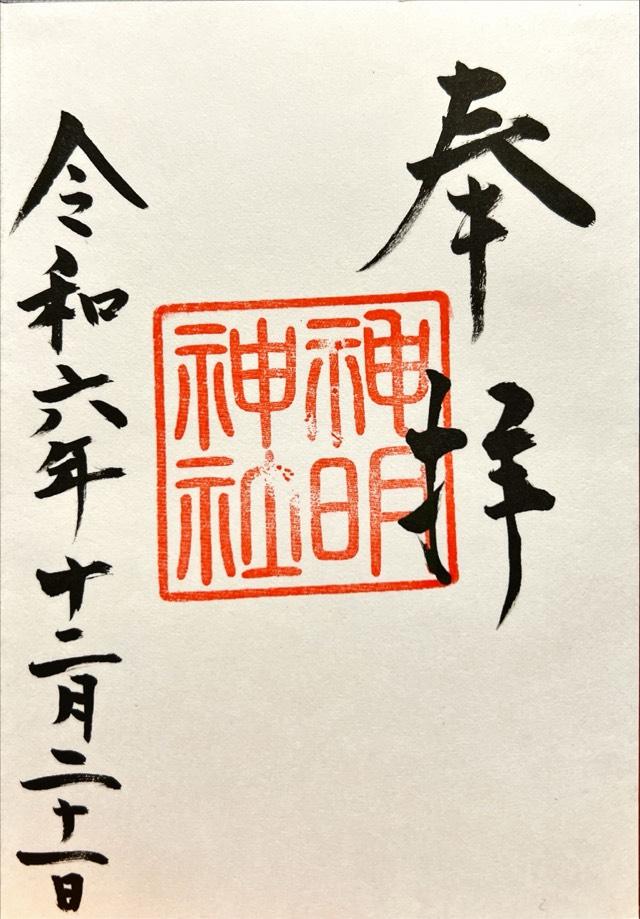 奉拝
神明
神社
令和六年十二月二十一日